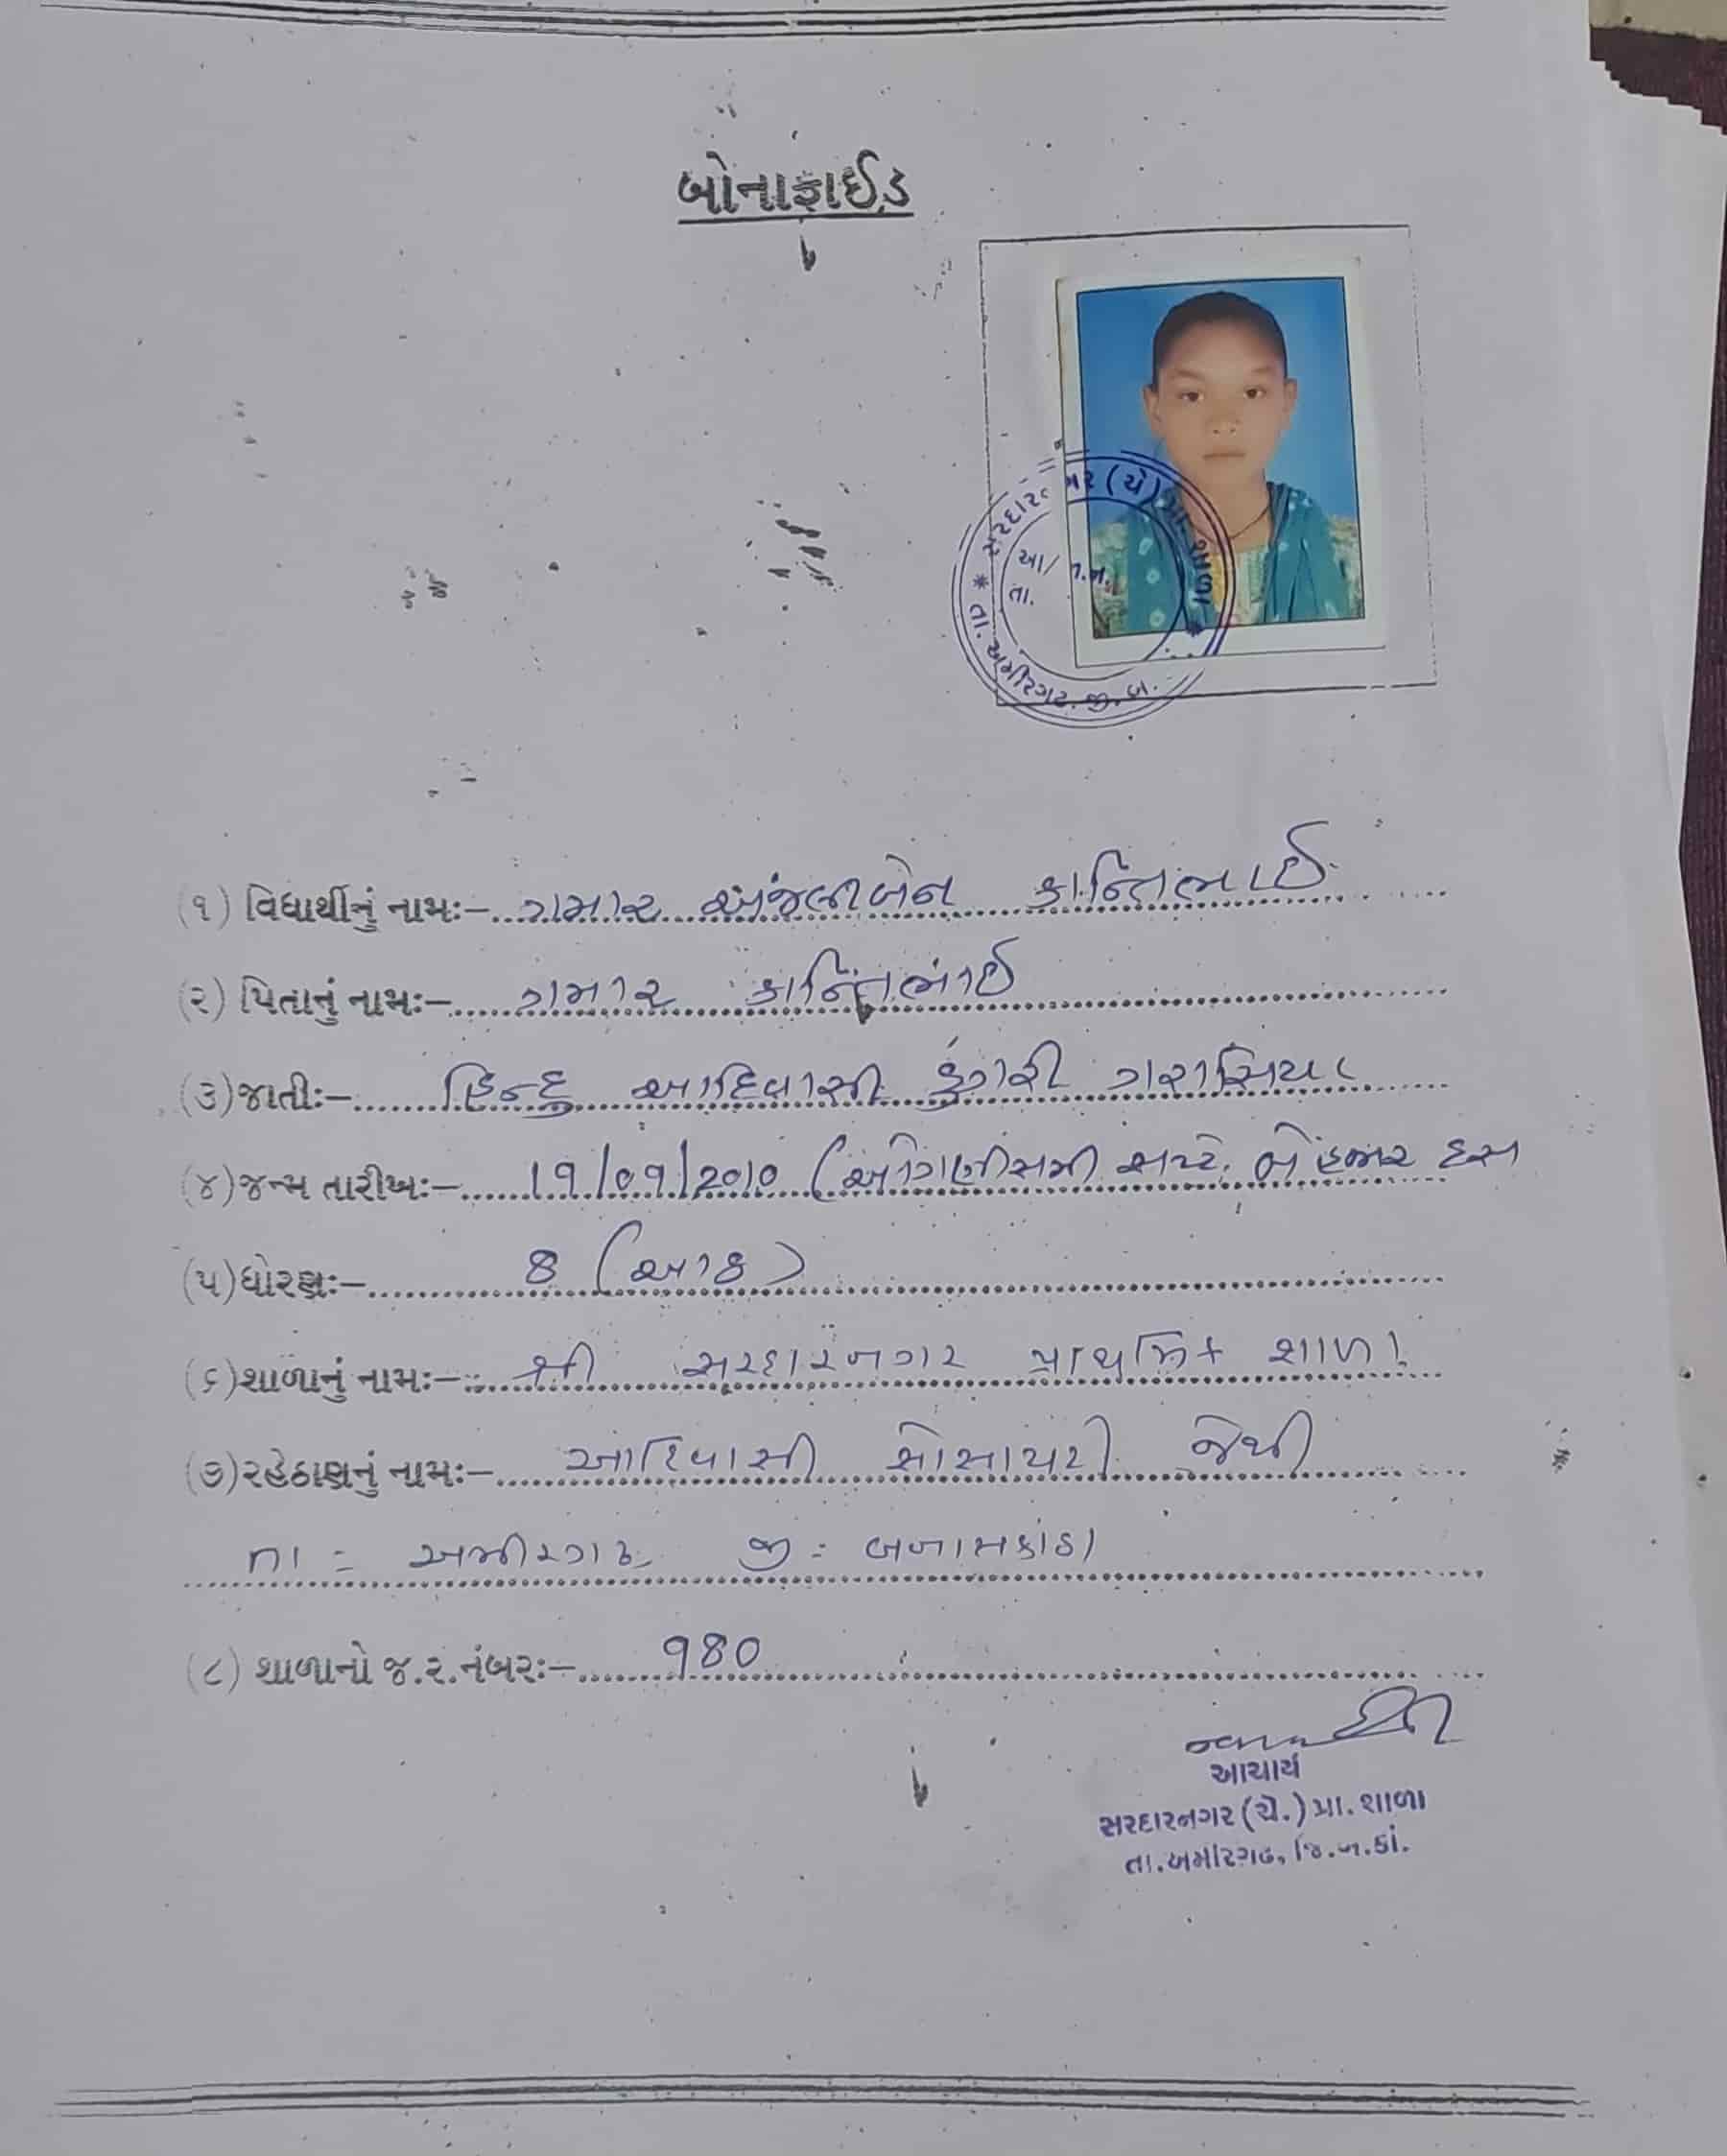 બોનાફાઈડ
સરદારનગર (ચે) પ્રા. શાળા * તા. અમીરગઢ. જી. બ.
આ/ ન.
તા.
(૧) વિદ્યાર્થીનું નામઃ- ગમાર અંજલીબેન કાન્તિભાઈ
(૨) પિતાનું નામઃ- ગમાર કાન્તિભાઈ
(૩)જાતીઃ- હિન્દુ આદિવાસી ડુંગરી ગરાસિયા
(૪)જન્મ તારીખઃ- ૧૯/૦૧/૨૦૧૦ (ઓગણીસમી બે હજાર દસ
(૫)ધોરણઃ- 8 (આઠ)
(૬)શાળાનું નામઃ- શ્રી સરદારનગર પ્રાથમિક શાળા
(૭)રહેઠાણનું નામઃ- આદિવાસી સોસાયટી જેથી
તા = અમીરગઢ જી = બનાસકાંઠા
(૮) શાળાનો જ.ર.નંબરઃ- ૧80
આચાર્ય
સરદારનગર (ચે.) પ્રા. શાળા
તા.અમીરગઢ, જિ.બ.કાં.